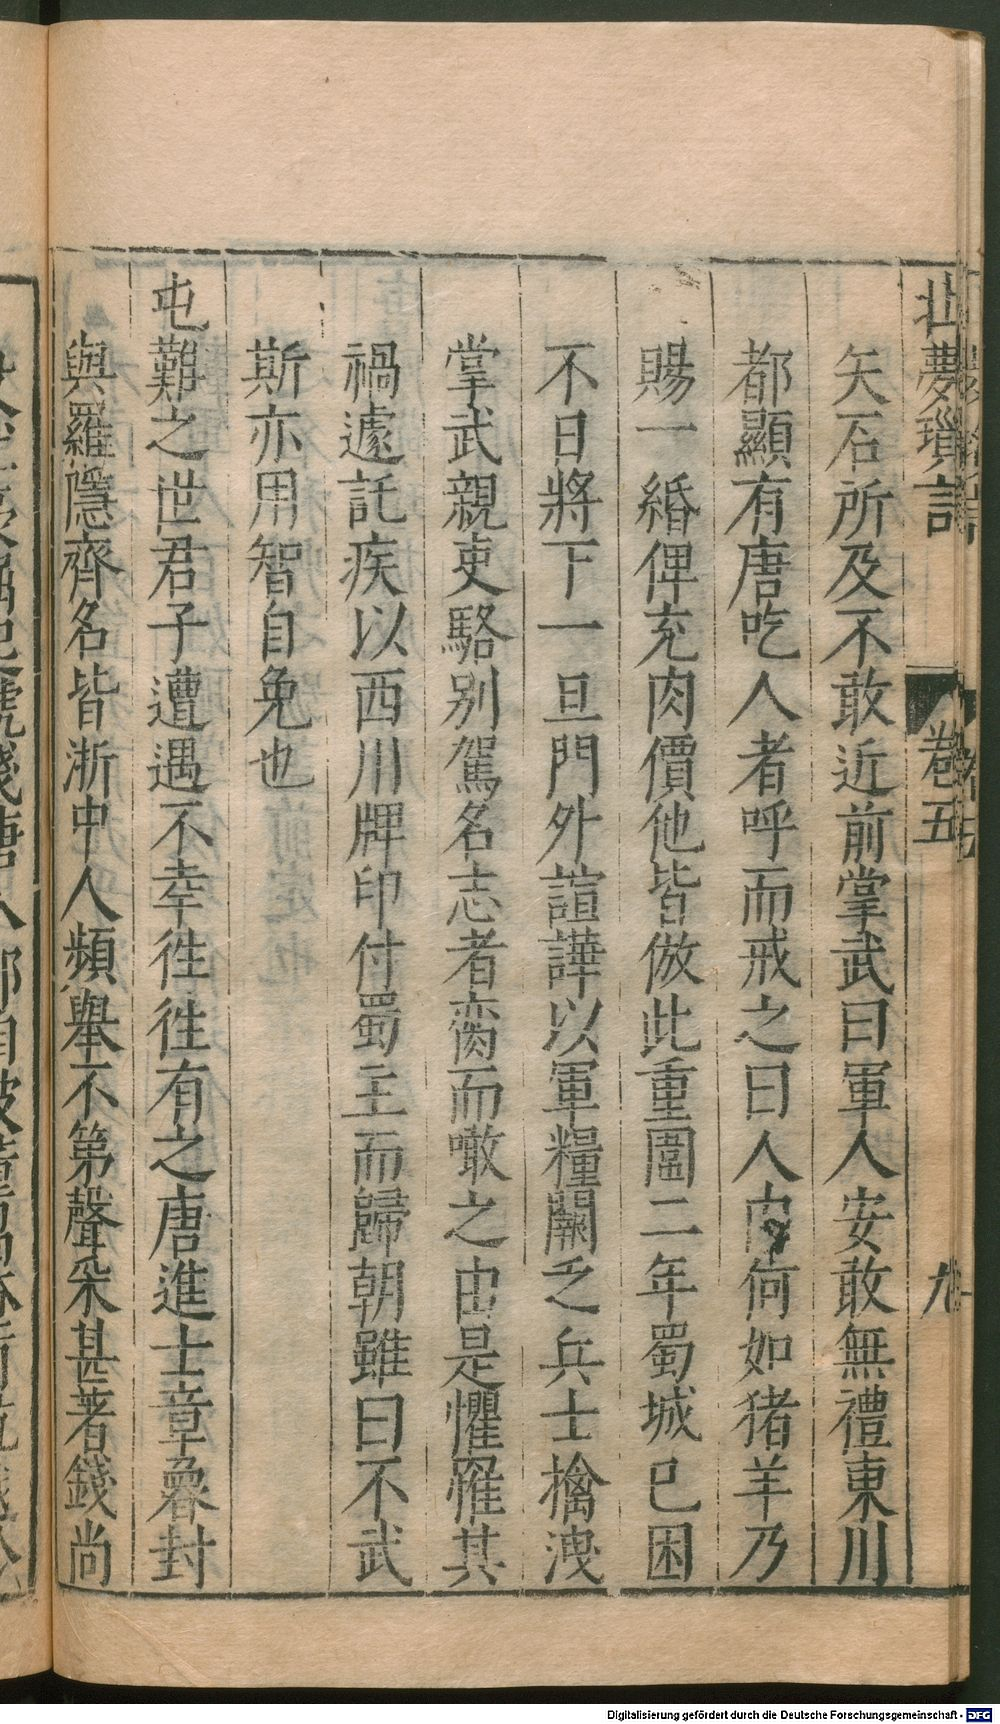 北夢瑣言
卷五
九
矢石所及不敢近前掌武曰軍人安敢無禮東川
都顯有唐吃人者呼而戒之曰人肉何如猪羊乃
賜一緡俾充肉價他皆倣此重圍二年蜀城已困
不日將下一旦門外諠譁以軍糧闕乏兵士擒洩
掌武親吏駱別駕名志者臠而噉之由是懼罹其
禍遽託疾以西川牌印付蜀主而歸朝雖曰不武
斯亦用智自免也
屯難之世君子遭遇不幸徃徃有之唐進士章魯封
與羅隱齊名皆浙中人頻舉不第聲采甚著錢尚
Digitalisierung gefördert durch die Deutsche Forschungsgemeinschaft - DFG